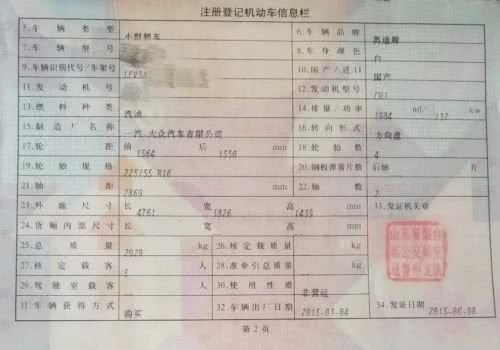 注册登记机动车信息栏
5.车辆类型 小型轿车 6.车辆品牌 奥迪牌
7.车辆型号 8.车身颜色 白
9.车辆识别代号/车架号 LFV3A 10.国产/进口 国产
11.发动机号 12.发动机型号 CUJ
13.燃料种类 汽油 14.排量/功率 1984 ml/ 132 kw
15.制造厂名称 一汽-大众汽车有限公司 16.转向形式 方向盘
17.轮距 前 1564 后 1550 mm 18.轮胎数 4
19.轮胎规格 225/55 R16 20.钢板弹簧片数 后轴
21.轴距 2869 mm 22.轴数 2
23.外廓尺寸 长 4761 宽 1826 高 1439 mm 33.发证机关章
24.货厢内部尺寸 长 宽 高 mm
25.总质量 kg 26.核定载质量 kg
27.核定载客 5 人 28.准牵引总质量 kg
29.驾驶室载客 人 30.使用性质 非营运
31.车辆获得方式 购买 32.车辆出厂日期 2015-03-04 34.发证日期 2015-06-08
第2页